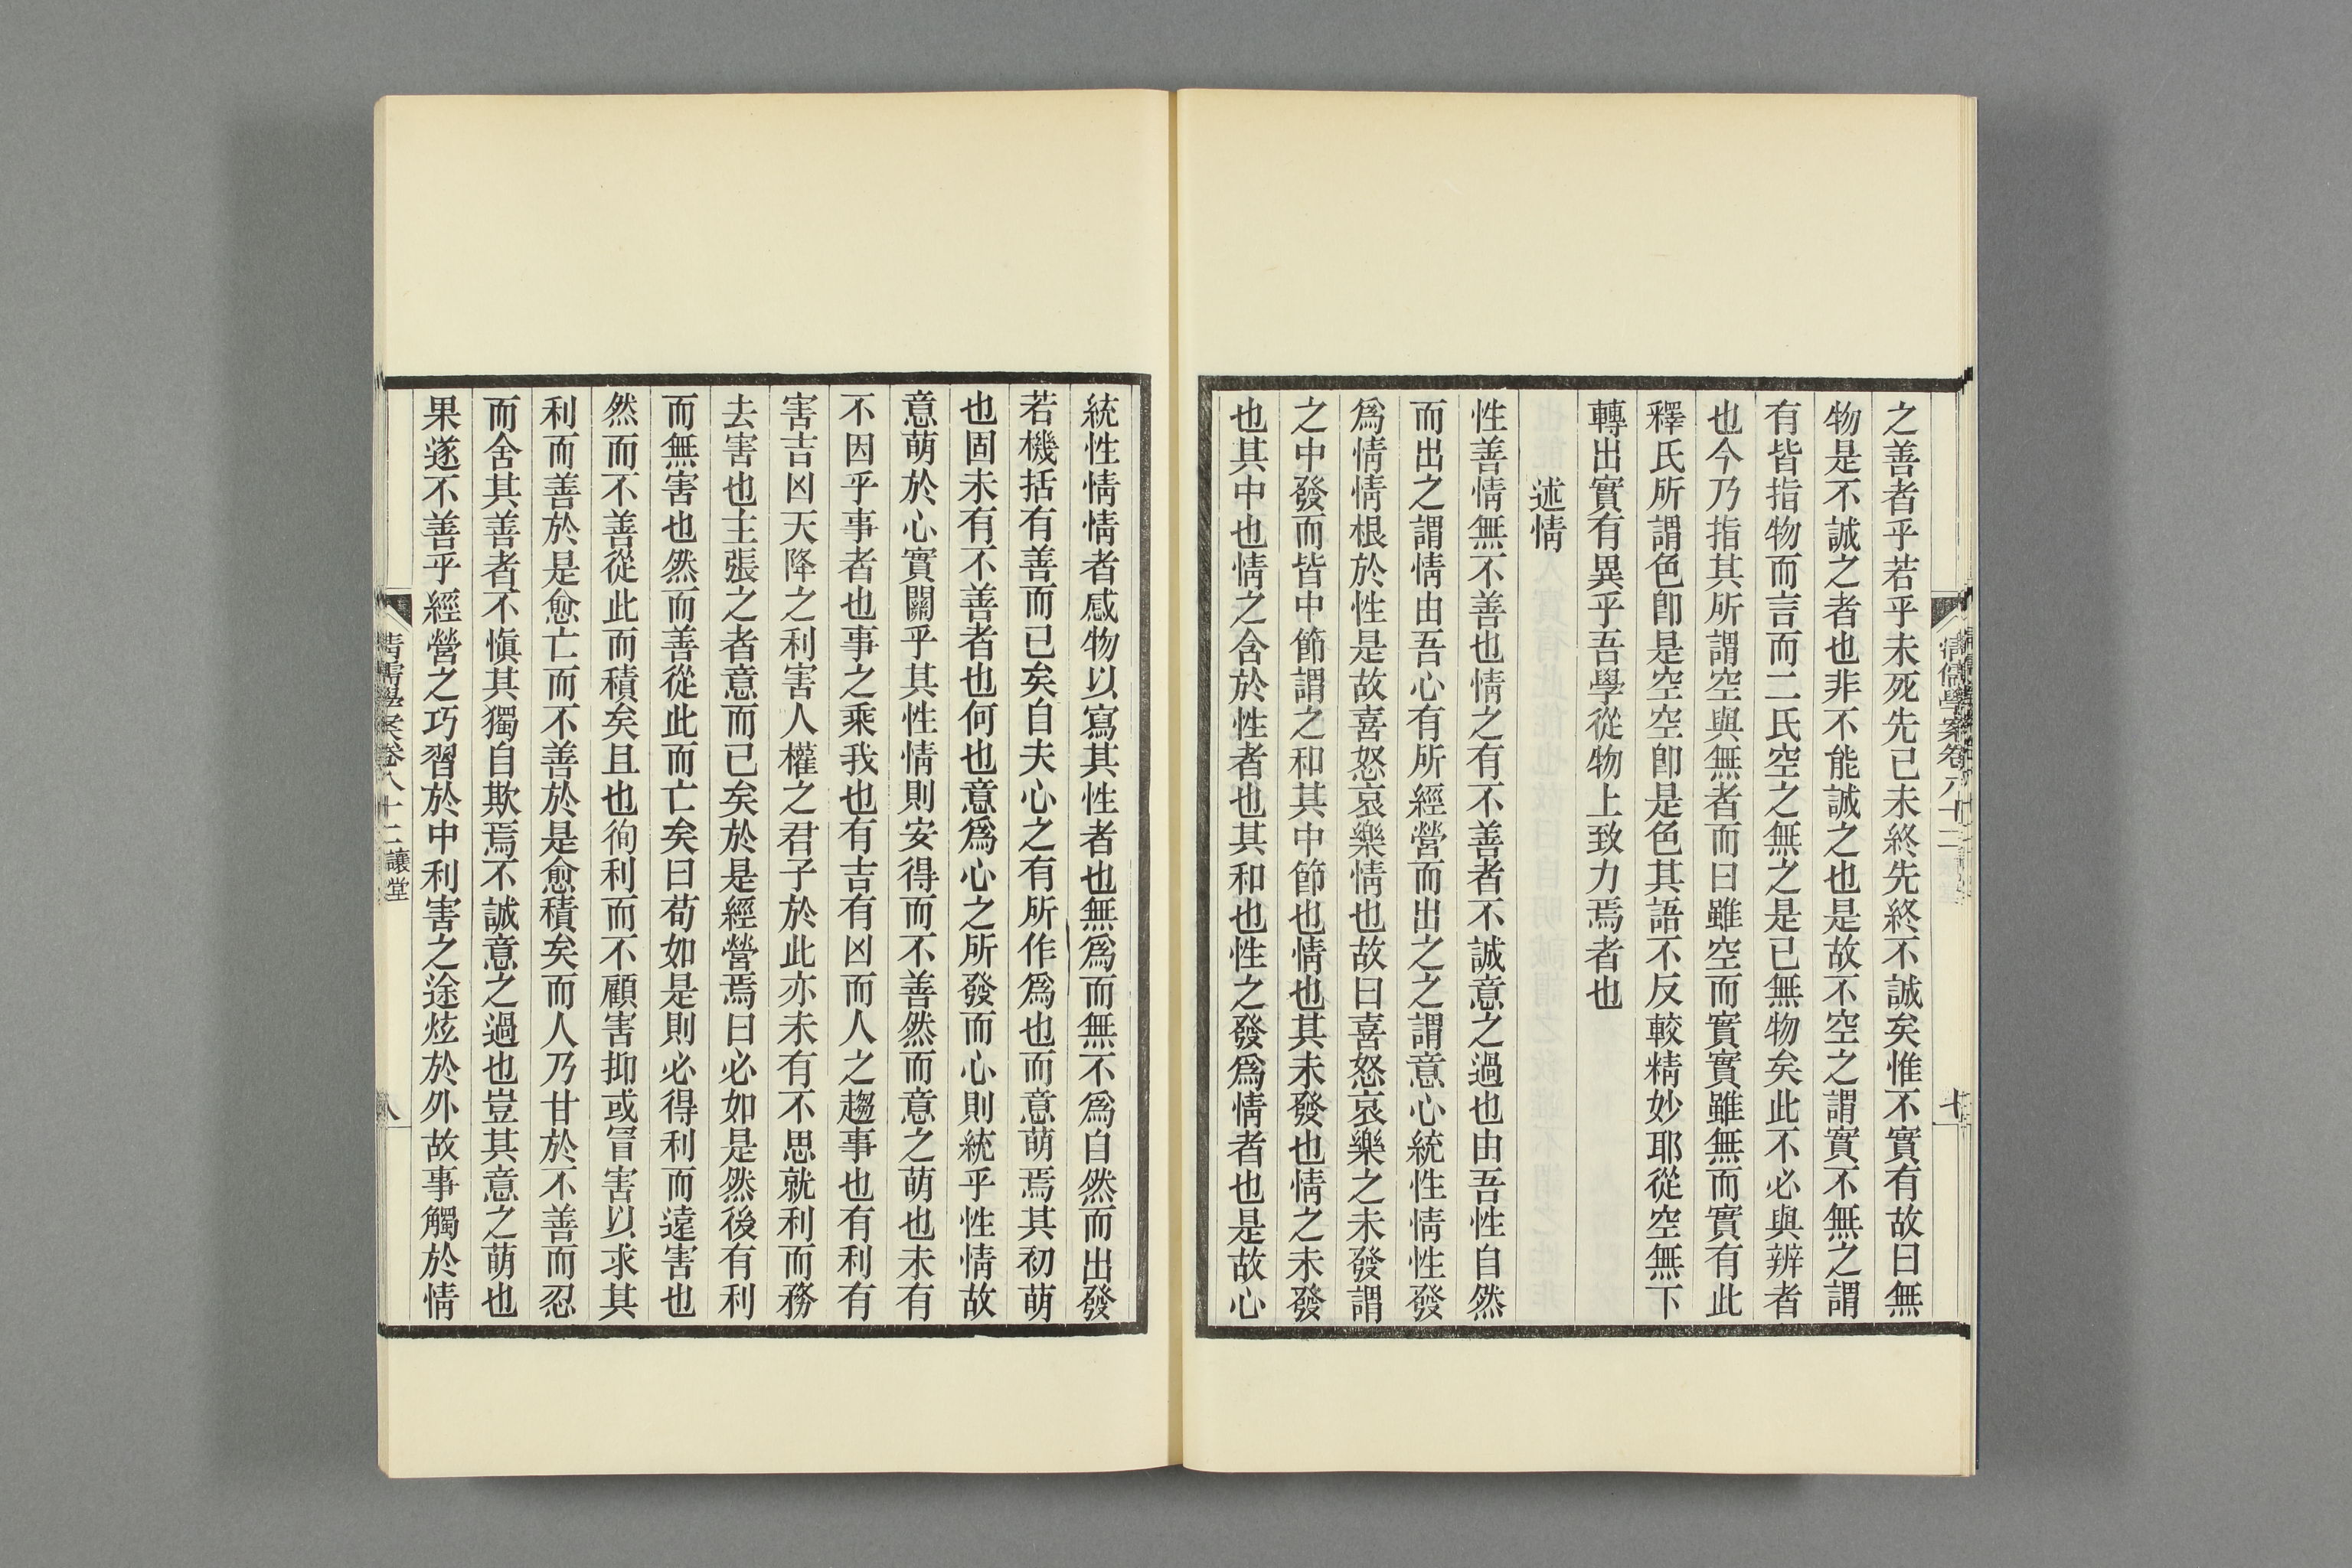 之善者乎若乎未死先已未終先終不誠矣惟不實有故曰無
物是不誠之者也非不能誠之也是故不空之謂實不無之謂
有皆指物而言而二氏空之無之是已無物矣此不必與辨者
也今乃指其所謂空與無者而曰雖空而實實雖無而實有此
釋氏所謂色卽是空空卽是色其語不反較精妙耶從空無下
轉出實有異乎吾學從物上致力焉者也
述情
性善情無不善也情之有不善者不誠意之過也由吾性自然
而出之謂情由吾心有所經營而出之之謂意心統性情性發
爲情情根於性是故喜怒哀樂情也故曰喜怒哀樂之未發謂
之中發而皆中節謂之和其中節也情也其未發也情之未發
也其中也情之含於性者也其和也性之發爲情者也是故心
統性情情者感物以寫其性者也無爲而無不爲自然而出發
若機括有善而已矣自夫心之有所作爲也而意萌焉其初萌
也固未有不善者也何也意爲心之所發而心則統乎性情故
意萌於心實關乎其性情則安得而不善然而意之萌也未有
不因乎事者也事之乘我也有吉有凶而人之趨事也有利有
害吉凶天降之利害人權之君子於此亦未有不思就利而務
去害也主張之者意而已矣於是經營焉曰必如是然後有利
而無害也然而善從此而亡矣曰苟如是則必得利而遠害也
然而不善從此而積矣且也徇利而不顧害抑或冒害以求其
利而善於是愈亡而不善於是愈積矣而人乃甘於不善而忍
而舍其善者不愼其獨自欺焉不誠意之過也豈其意之萌也
果遂不善乎經營之巧習於中利害之途炫於外故事觸於情
清儒學案卷八十二 讓堂
八